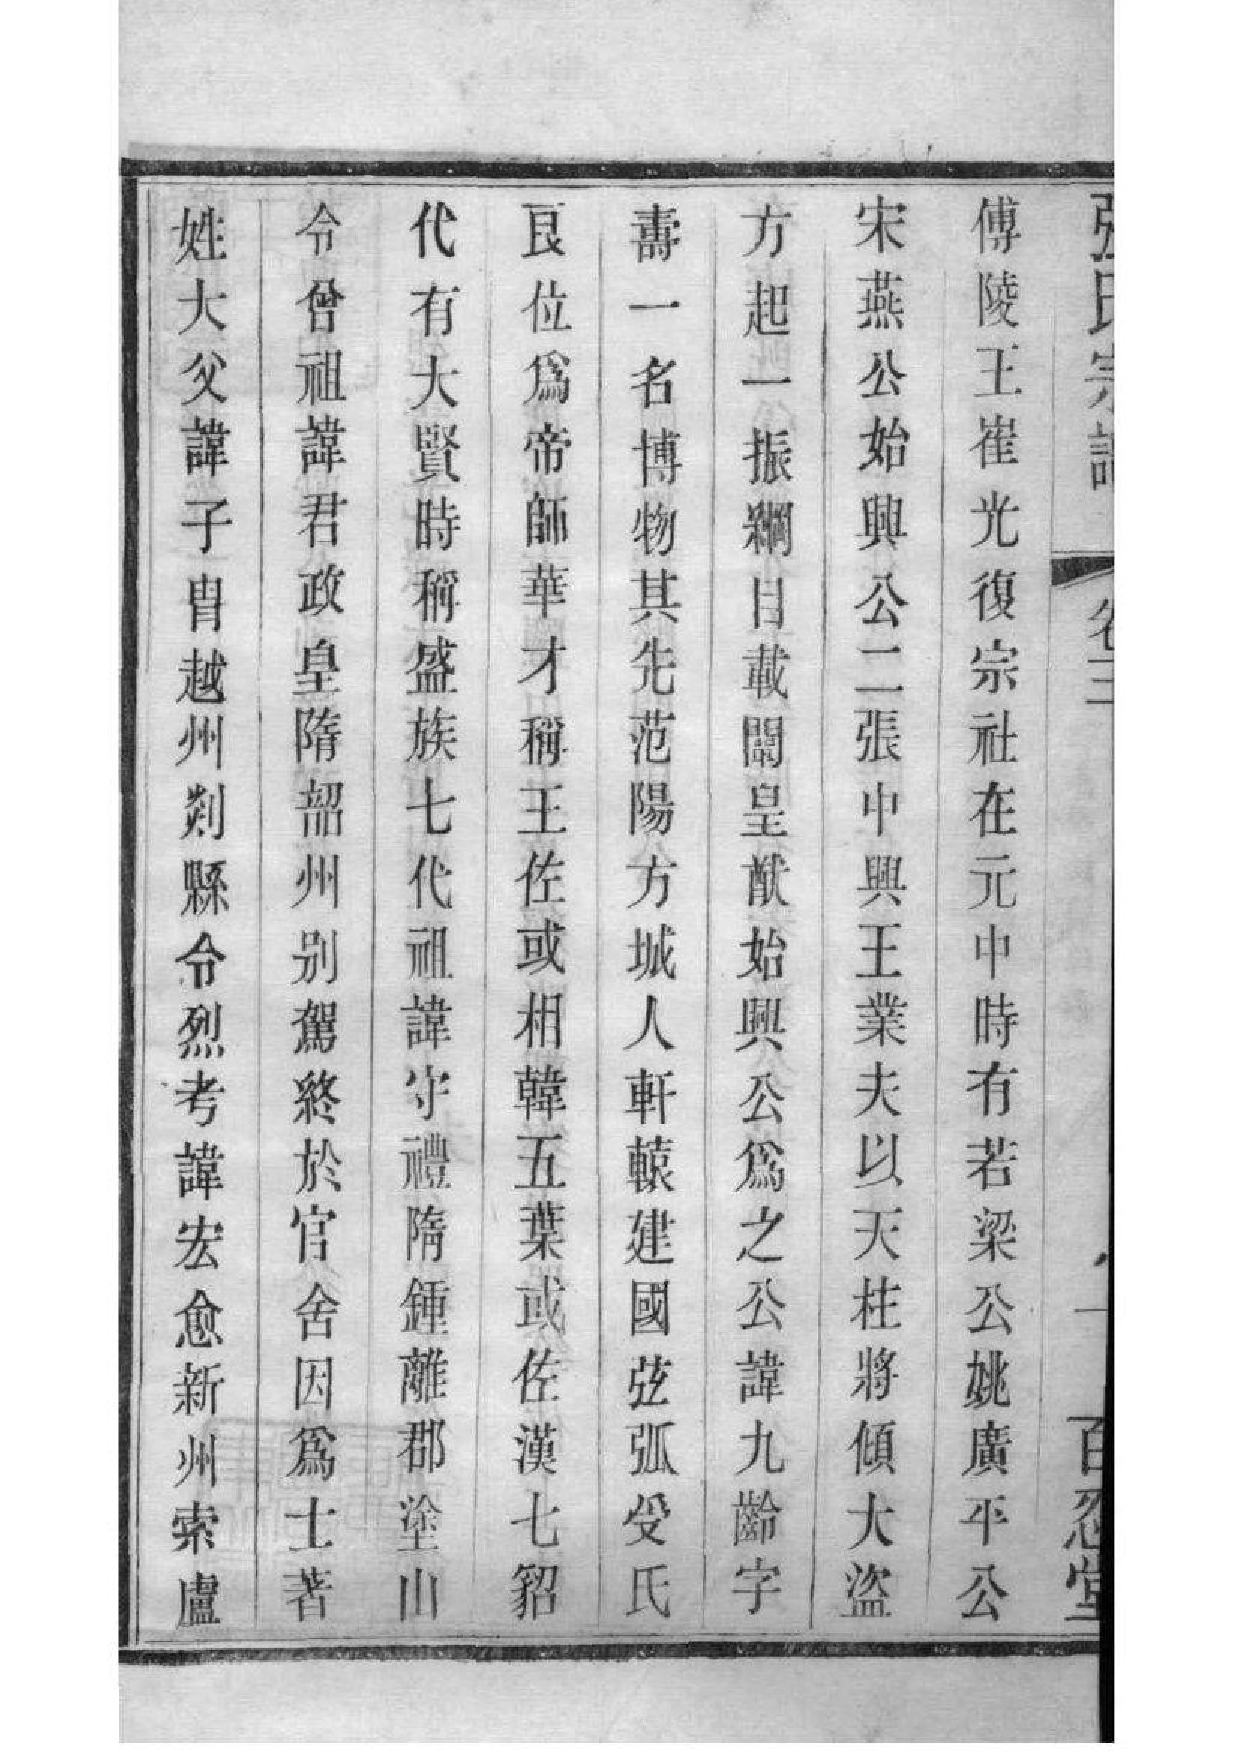 張氏宗譜 卷二 百忍堂
傅陵王崔光復宗社在元中時有若梁公姚廣平公
宋燕公始興公二張中興王業夫以天柱將傾大盜
方起一振綱目載闢皇猷始興公爲之公諱九齡字
壽一名博物其先范陽方城人軒轅建國弦弧受氏
良位爲帝師華才稱王佐或相韓五葉或佐漢七貂
代有大賢時稱盛族七代祖諱守禮隋鍾離郡塗山
令曾祖諱君政皇隋韶州别駕終於官舍因爲士著
姓大父諱子胄越州剡縣令烈考諱宏愈新州索盧